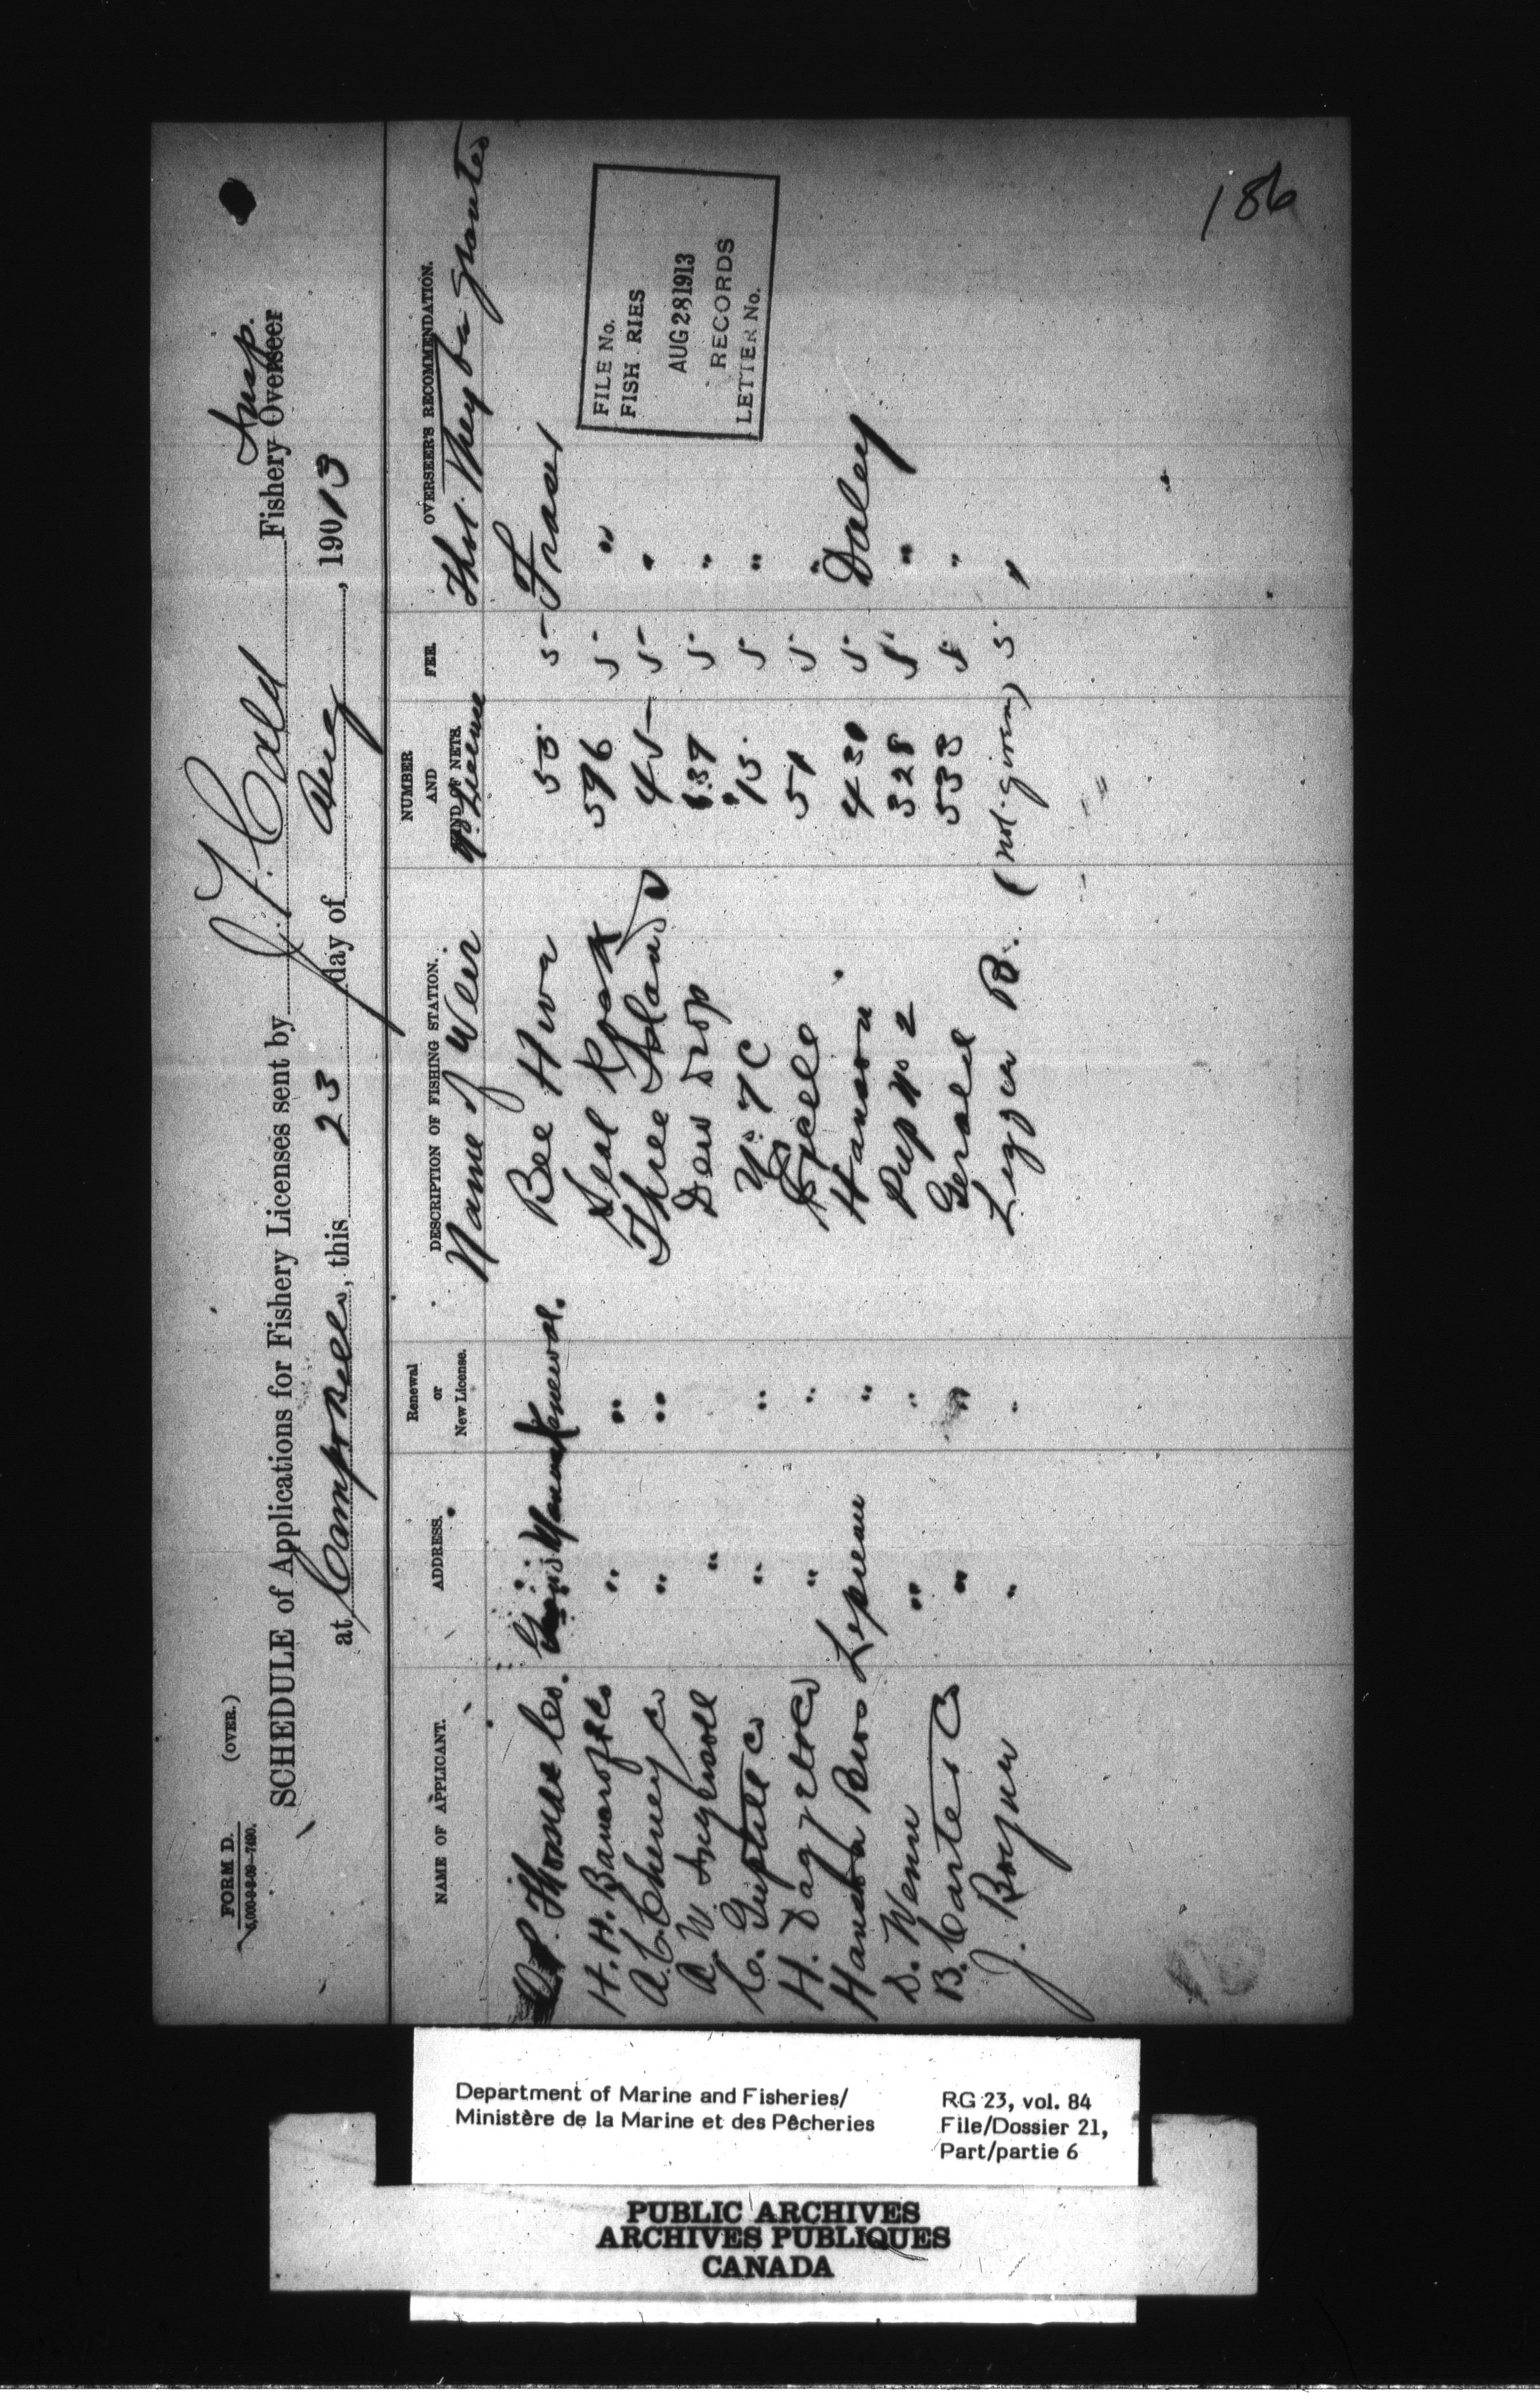 FORM D. (OVER.)
5,000-9-8-09-7490.
SCHEDULE of Applications for Fishery Licenses sent by J. F. Calder Insp. Fishery Overseer
at Campobello, this 23 day of Aug, 19013
NAME OF APPLICANT. ADDRESS. Renewal or New License. DESCRIPTION OF FISHING STATION. NUMBER AND KIND OF NETS. FEE. OVERSEER'S RECOMMENDATION.
Name of Weir No License That they be granted
Thomas Co. Grand Manan Renewal. Bee Hive 55 5 Fraser
H. H. Bancroft Co " " Seal Rock 596 5 "
A. C. Cheney Co " " Three Islands 45 5 "
A. W. Ingersoll " Dew Drop 5 "
C. Guptill Co " " No 7 C 15 5 "
H. Daggett Co " " 51 5 "
Hanson Bros Lepreau " Hanson 430 5 Daley
D. Wenn " " Pup No 2 328 5 "
B. Carter " " Gerald 533 5 "
J. Boyne " " B. (not given) 5 "
FILE No.
FISH RIES
AUG 28 1913
RECORDS
LETTER No.
186
Department of Marine and Fisheries/
Ministère de la Marine et des Pêcheries
RG 23, vol. 84
File/Dossier 21,
Part/partie 6
PUBLIC ARCHIVES
ARCHIVES PUBLIQUES
CANADA